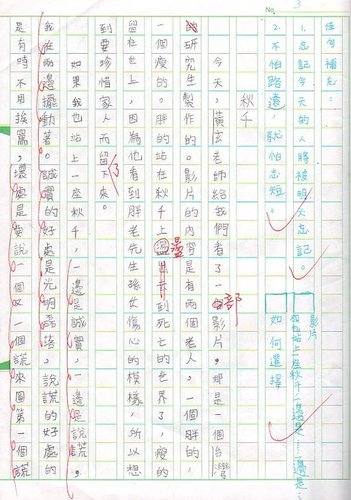 佳句補充：
1. 忘記今天的人將被明天忘記。
2. 不怕路遠，就怕志短。
影片
站上一座秋千一邊是…一邊是…
如何選擇
秋千
今天，黃玄老師給我們看了一部影片，那是一個台灣
的研究生製作的影片，內容是有兩個老人，一個胖的，
一個瘦的。胖的站在秋千上盪到死亡的世界了，瘦的
留在世上，因為他看到胖老先生孫女傷心的模樣，所以想
到要珍惜家人而留了下來。
如果我也站上一座秋千，一邊是誠實，一邊是說謊，
我在兩邊擺動著。誠實的好處是光明磊落，說謊的好處的
是有時不用挨罵，壞處是要說一個又一個謊來圓第一個謊